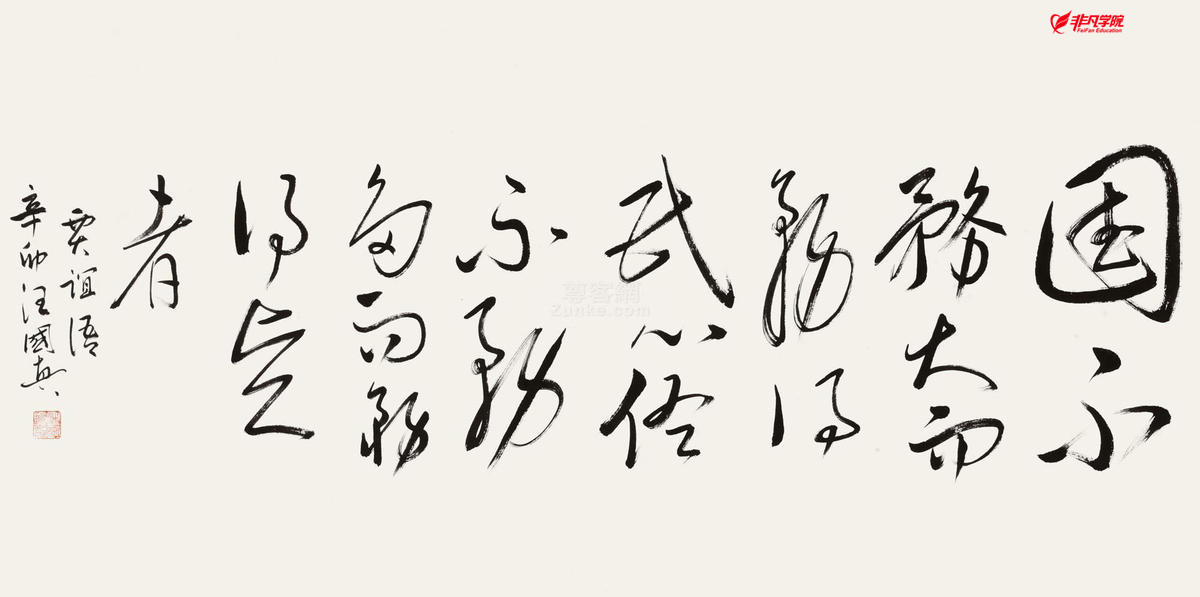 非凡学院
FeiFan Education
国不
務大而
務得
民心佐
不務
多而務
得賢
者
贾谊语
辛卯汪國真
尊客網
Zunke.com